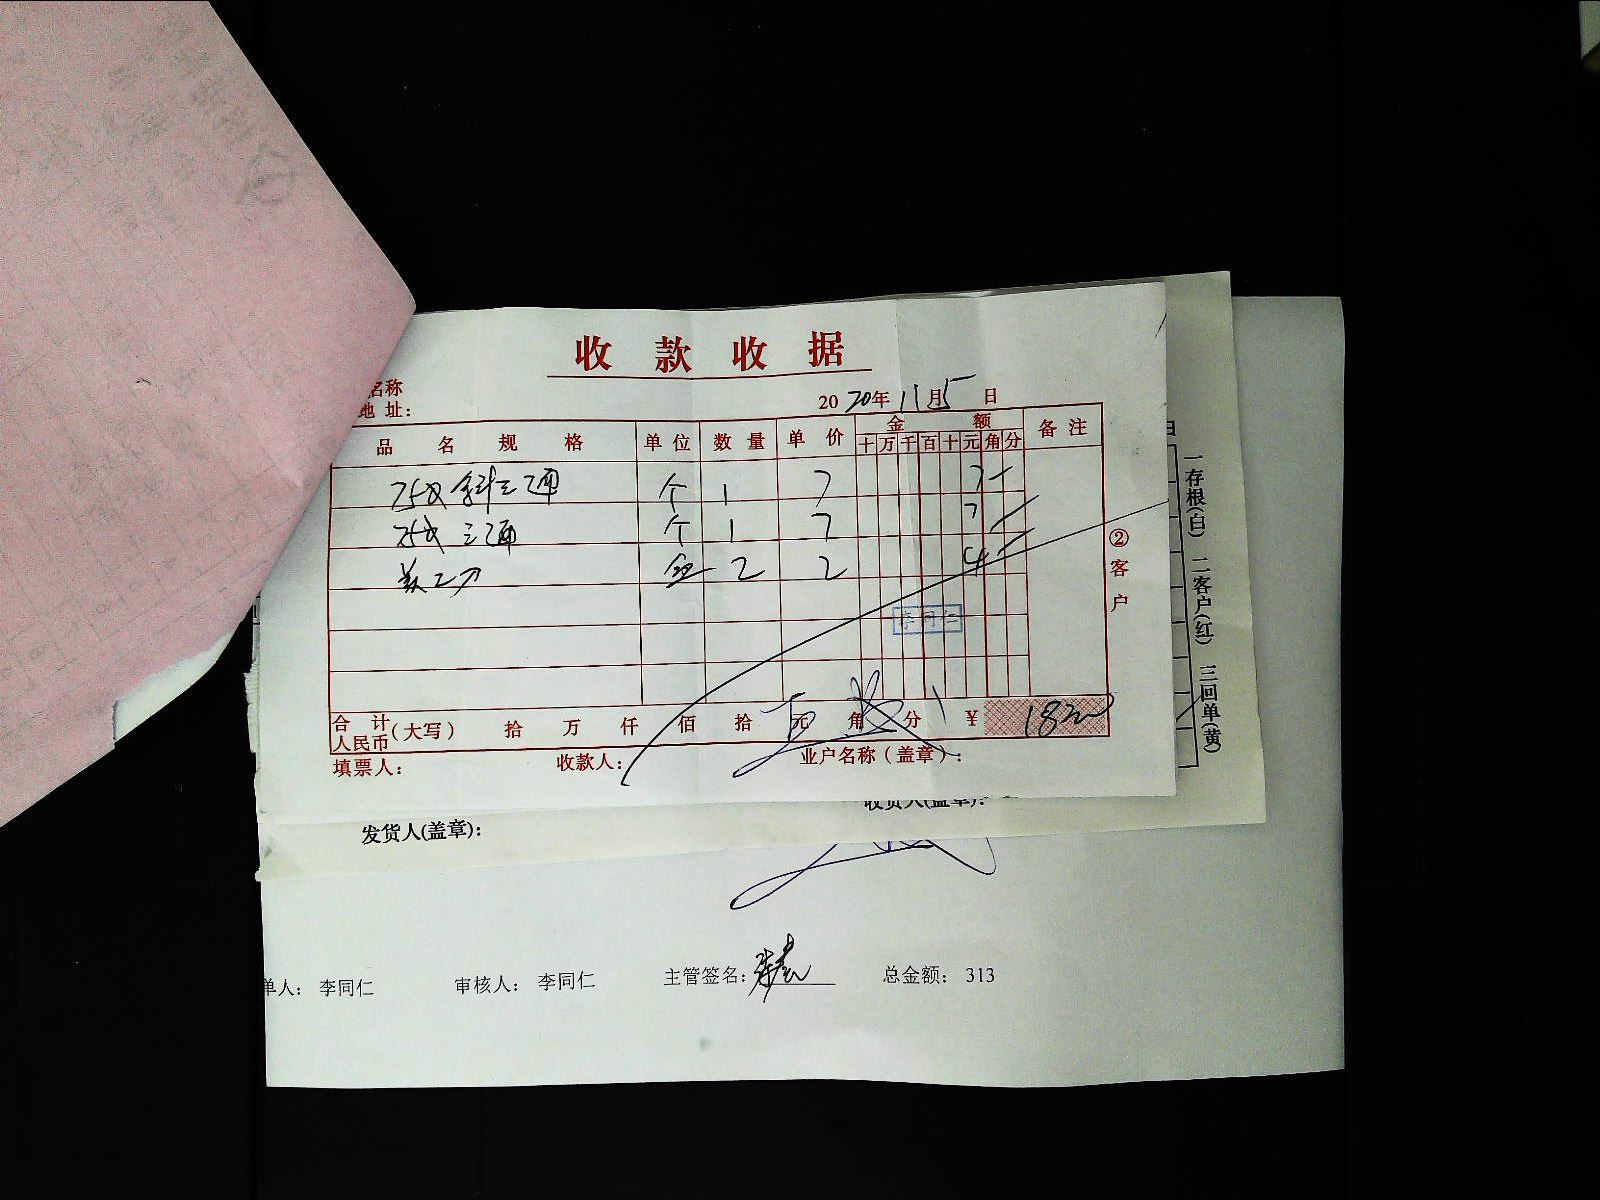 收款收据
名称
地 址:
2020年11月5日
品 名 规 格 单位 数量 单价 金额 备注
十万千百十元角分
75 斜三通 个 1 7 7
75 三通 个 1 7 7
美工刀 2 2 4
李同仁
合计人民币(大写) 拾 万 仟 佰 拾 元 角 分 ¥ 18
填票人: 收款人: 业户名称(盖章):
②客户
一存根(白) 二客户(红) 三回单(黄)
发货人(盖章): 收货人(盖章):
单人: 李同仁 审核人: 李同仁 主管签名: 总金额: 313